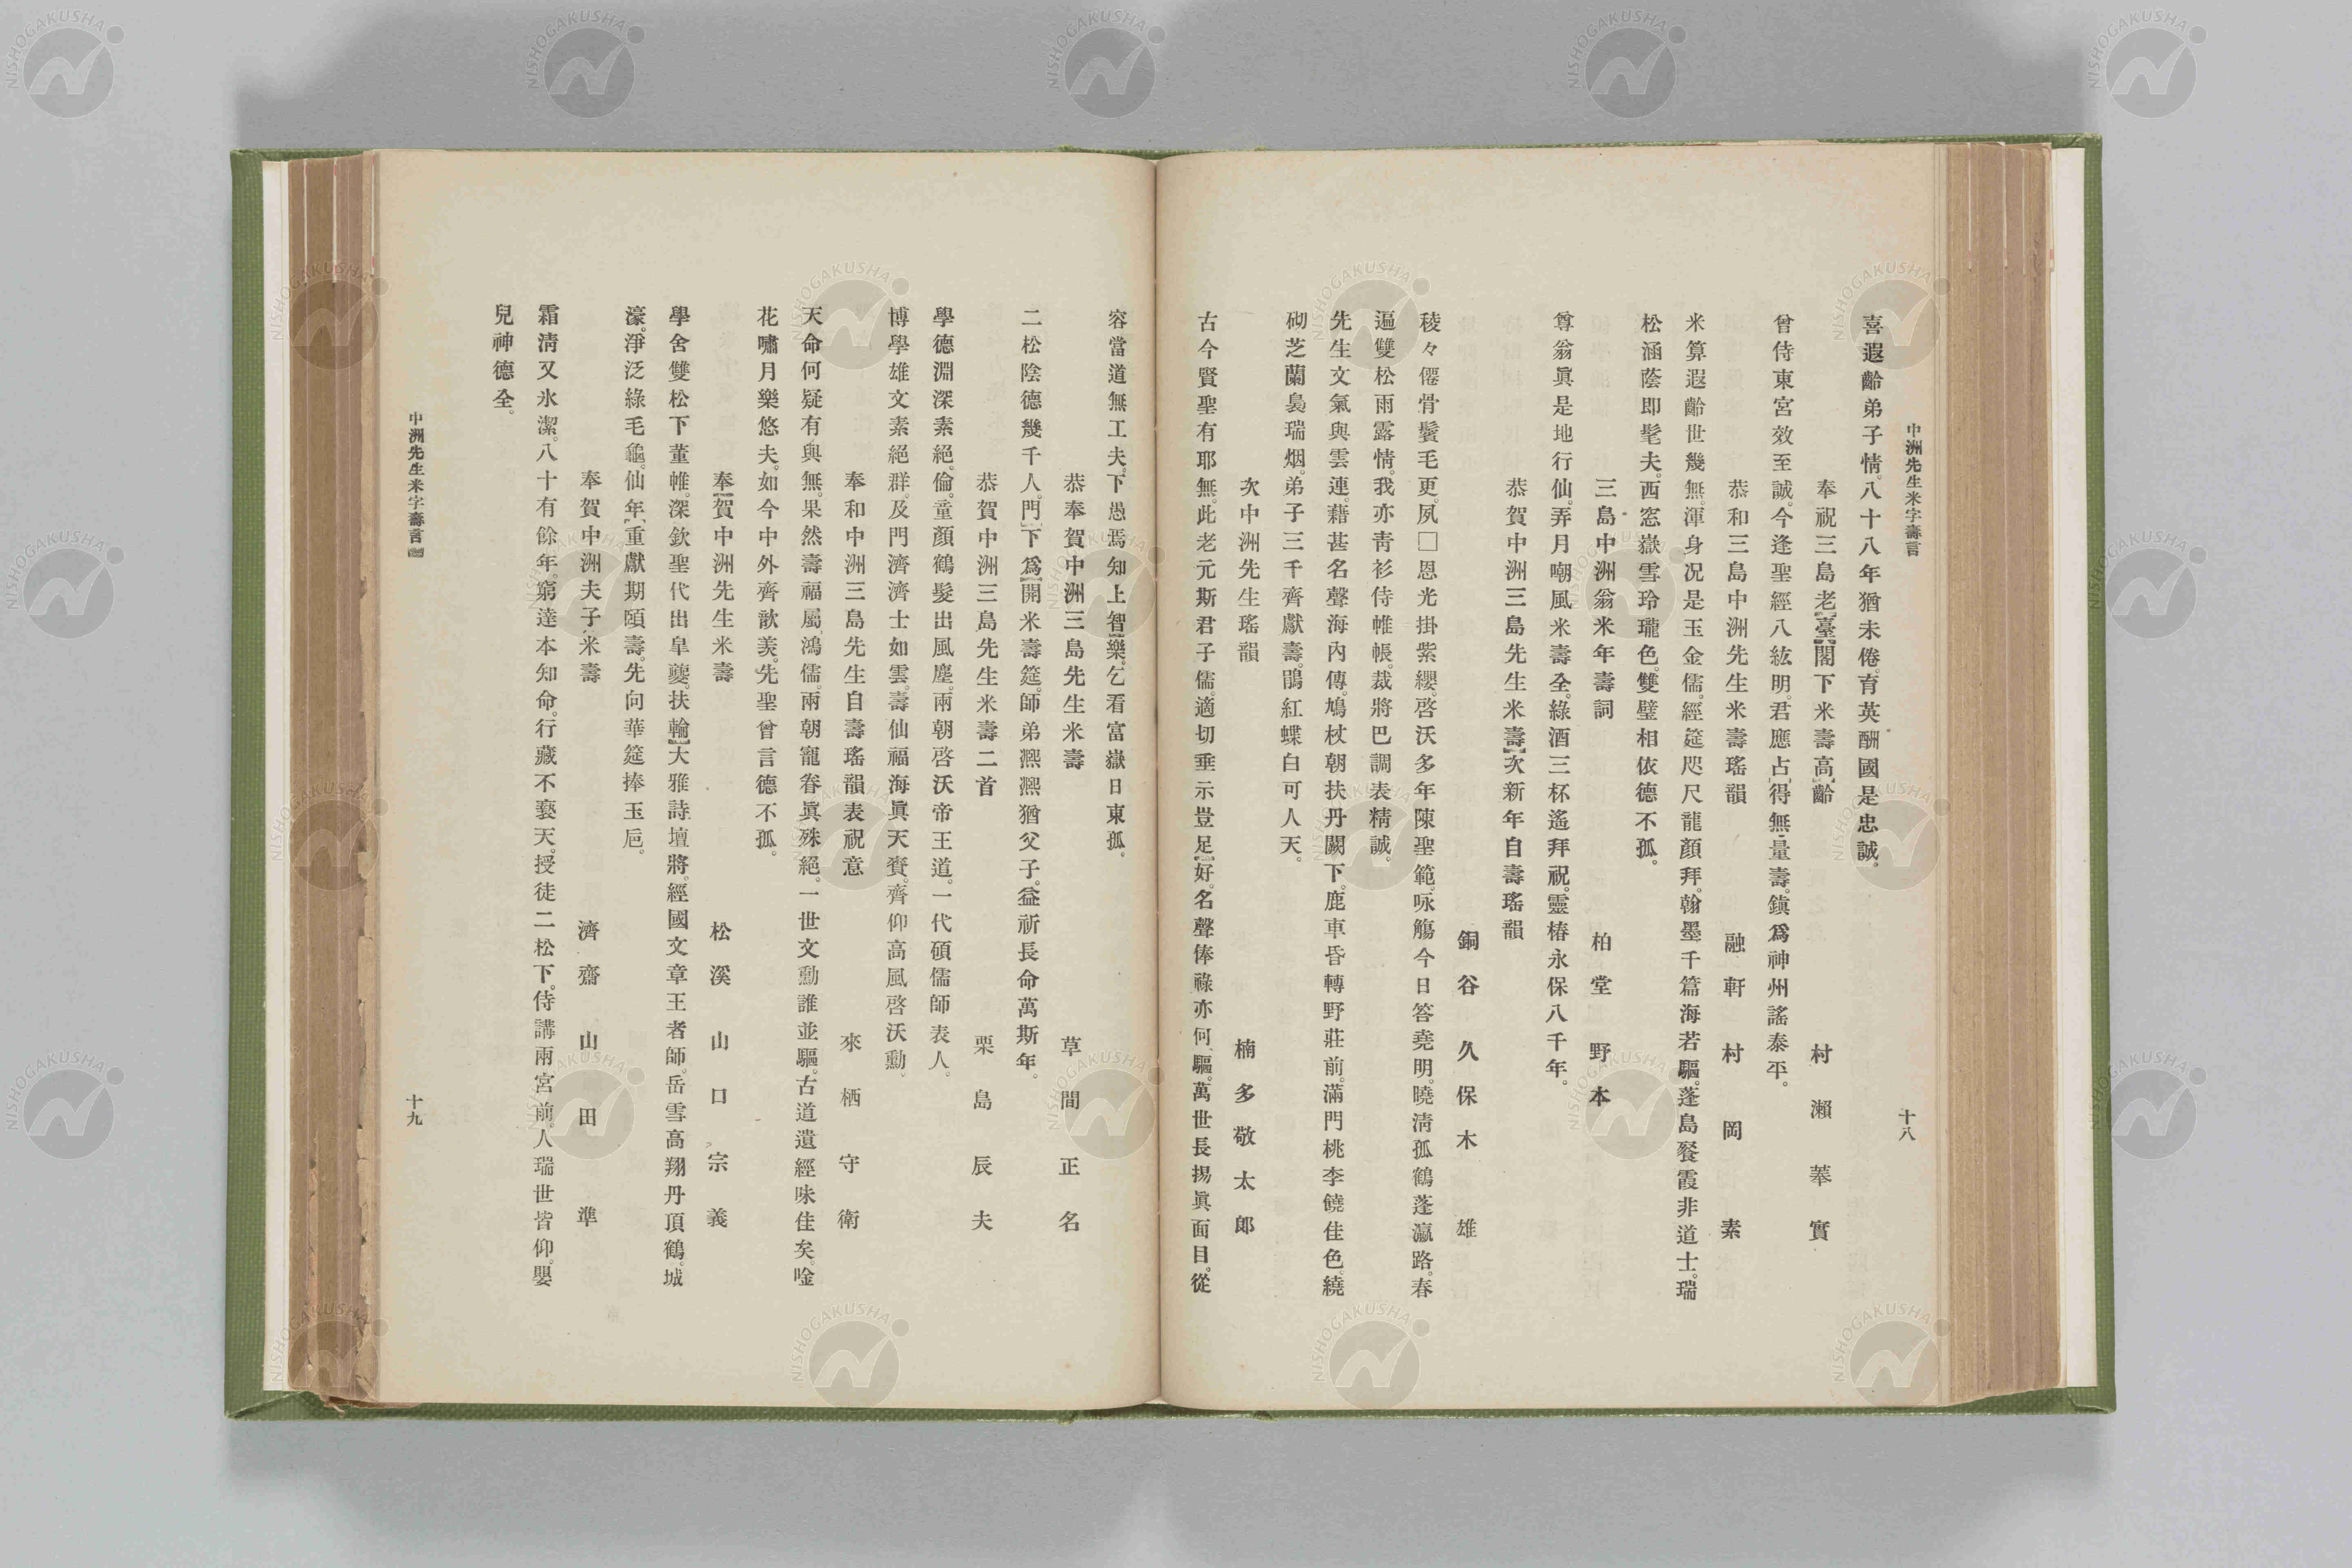 中洲先生米字壽言
十八
喜遐齡弟子情。八十八年猶未倦。育英酬國是忠誠。
奉祝三島老臺閣下米壽高齡
村瀨菶實
曾侍東宮效至誠。今逢聖經八紘明。君應占得無量壽。鎭爲神州謠泰平。
恭和三島中洲先生米壽瑤韻
融軒村岡素
米算遐齡世幾無。渾身況是玉金儒。經筵咫尺龍顏拜。翰墨千篇海若驅。蓬島餐霞非道士。瑞
松涵蔭即髦夫。西窓嶽雪玲瓏色。雙璧相依德不孤。
三島中洲翁米年壽詞
柏堂野本
尊翁眞是地行仙。弄月嘲風米壽全。綠酒三杯遙拜祝。靈椿永保八千年。
恭賀中洲三島先生米壽次新年自壽瑤韻
銅谷久保木雄
稜々僊骨鬢毛更。夙□恩光掛紫纓。啓沃多年陳聖範。咏觴今日答堯明。曉淸孤鶴蓬瀛路。春
遍雙松雨露情。我亦靑衫侍帷帳。裁將巴調表精誠。
先生文氣與雲連。藉甚名聲海內傳。鳩杖朝扶丹闕下。鹿車昏轉野莊前。滿門桃李饒佳色。繞
砌芝蘭裊瑞烟。弟子三千齊獻壽。鵑紅蝶白可人天。
次中洲先生瑤韻
楠多敬太郎
古今賢聖有耶無。此老元斯君子儒。適切垂示豈足好。名聲俸祿亦何驅。萬世長揚眞面目。從
容當道無工夫。下愚焉知上智樂。乞看富嶽日東孤。
恭奉賀中洲三島先生米壽
草間正名
二松陰德幾千人。門下爲開米壽筵。師弟凞凞猶父子。益祈長命萬斯年。
恭賀中洲三島先生米壽二首
栗島辰夫
學德淵深素絕倫。童顏鶴髮出風塵。兩朝啓沃帝王道。一代碩儒師表人。
博學雄文素絕群。及門濟濟士如雲。壽仙福海眞天賚。齊仰高風啓沃勳。
奉和中洲三島先生自壽瑤韻表祝意
來栖守衛
天命何疑有與無。果然壽福屬鴻儒。兩朝寵眷眞殊絕。一世文勳誰並驅。古道遺經味佳矣。唫
花嘯月樂悠夫。如今中外齊歆羨。先聖曾言德不孤。
奉賀中洲先生米壽
松溪山口宗義
學舍雙松下董帷。深欽聖代出皐夔。扶輪大雅詩壇將。經國文章王者師。岳雪高翔丹頂鶴。城
濠淨泛綠毛龜。仙年重獻期頤壽。先向華筵捧玉巵。
奉賀中洲夫子米壽
濟齋山田準
霜淸又氷潔。八十有餘年。窮達本知命。行藏不褻天。授徒二松下。侍講兩宮前。人瑞世皆仰。嬰
兒神德全。
中洲先生米字壽言
十九
NISHOGAKUSHA